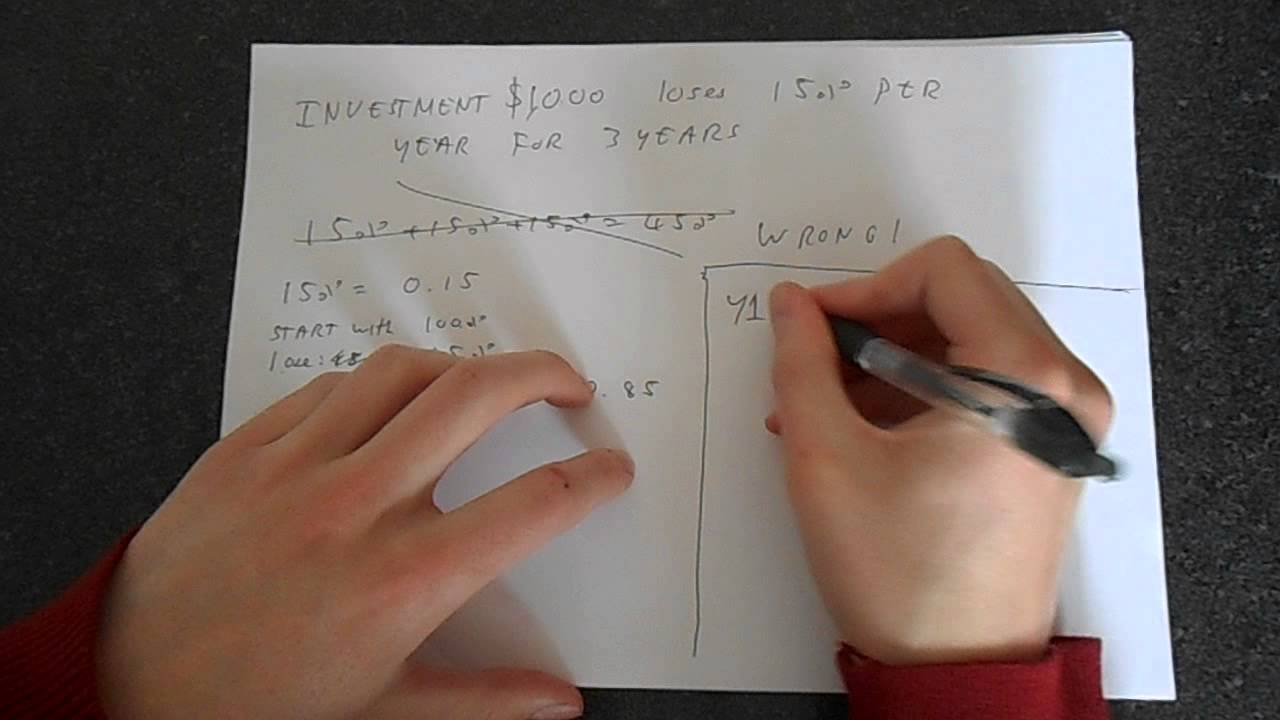 INVESTMENT $1000 loses 15% PER
YEAR FOR 3 YEARS
15% + 15% + 15% = 45%
WRONG!
15% = 0.15
START with 100%
lose:
.85
Y1